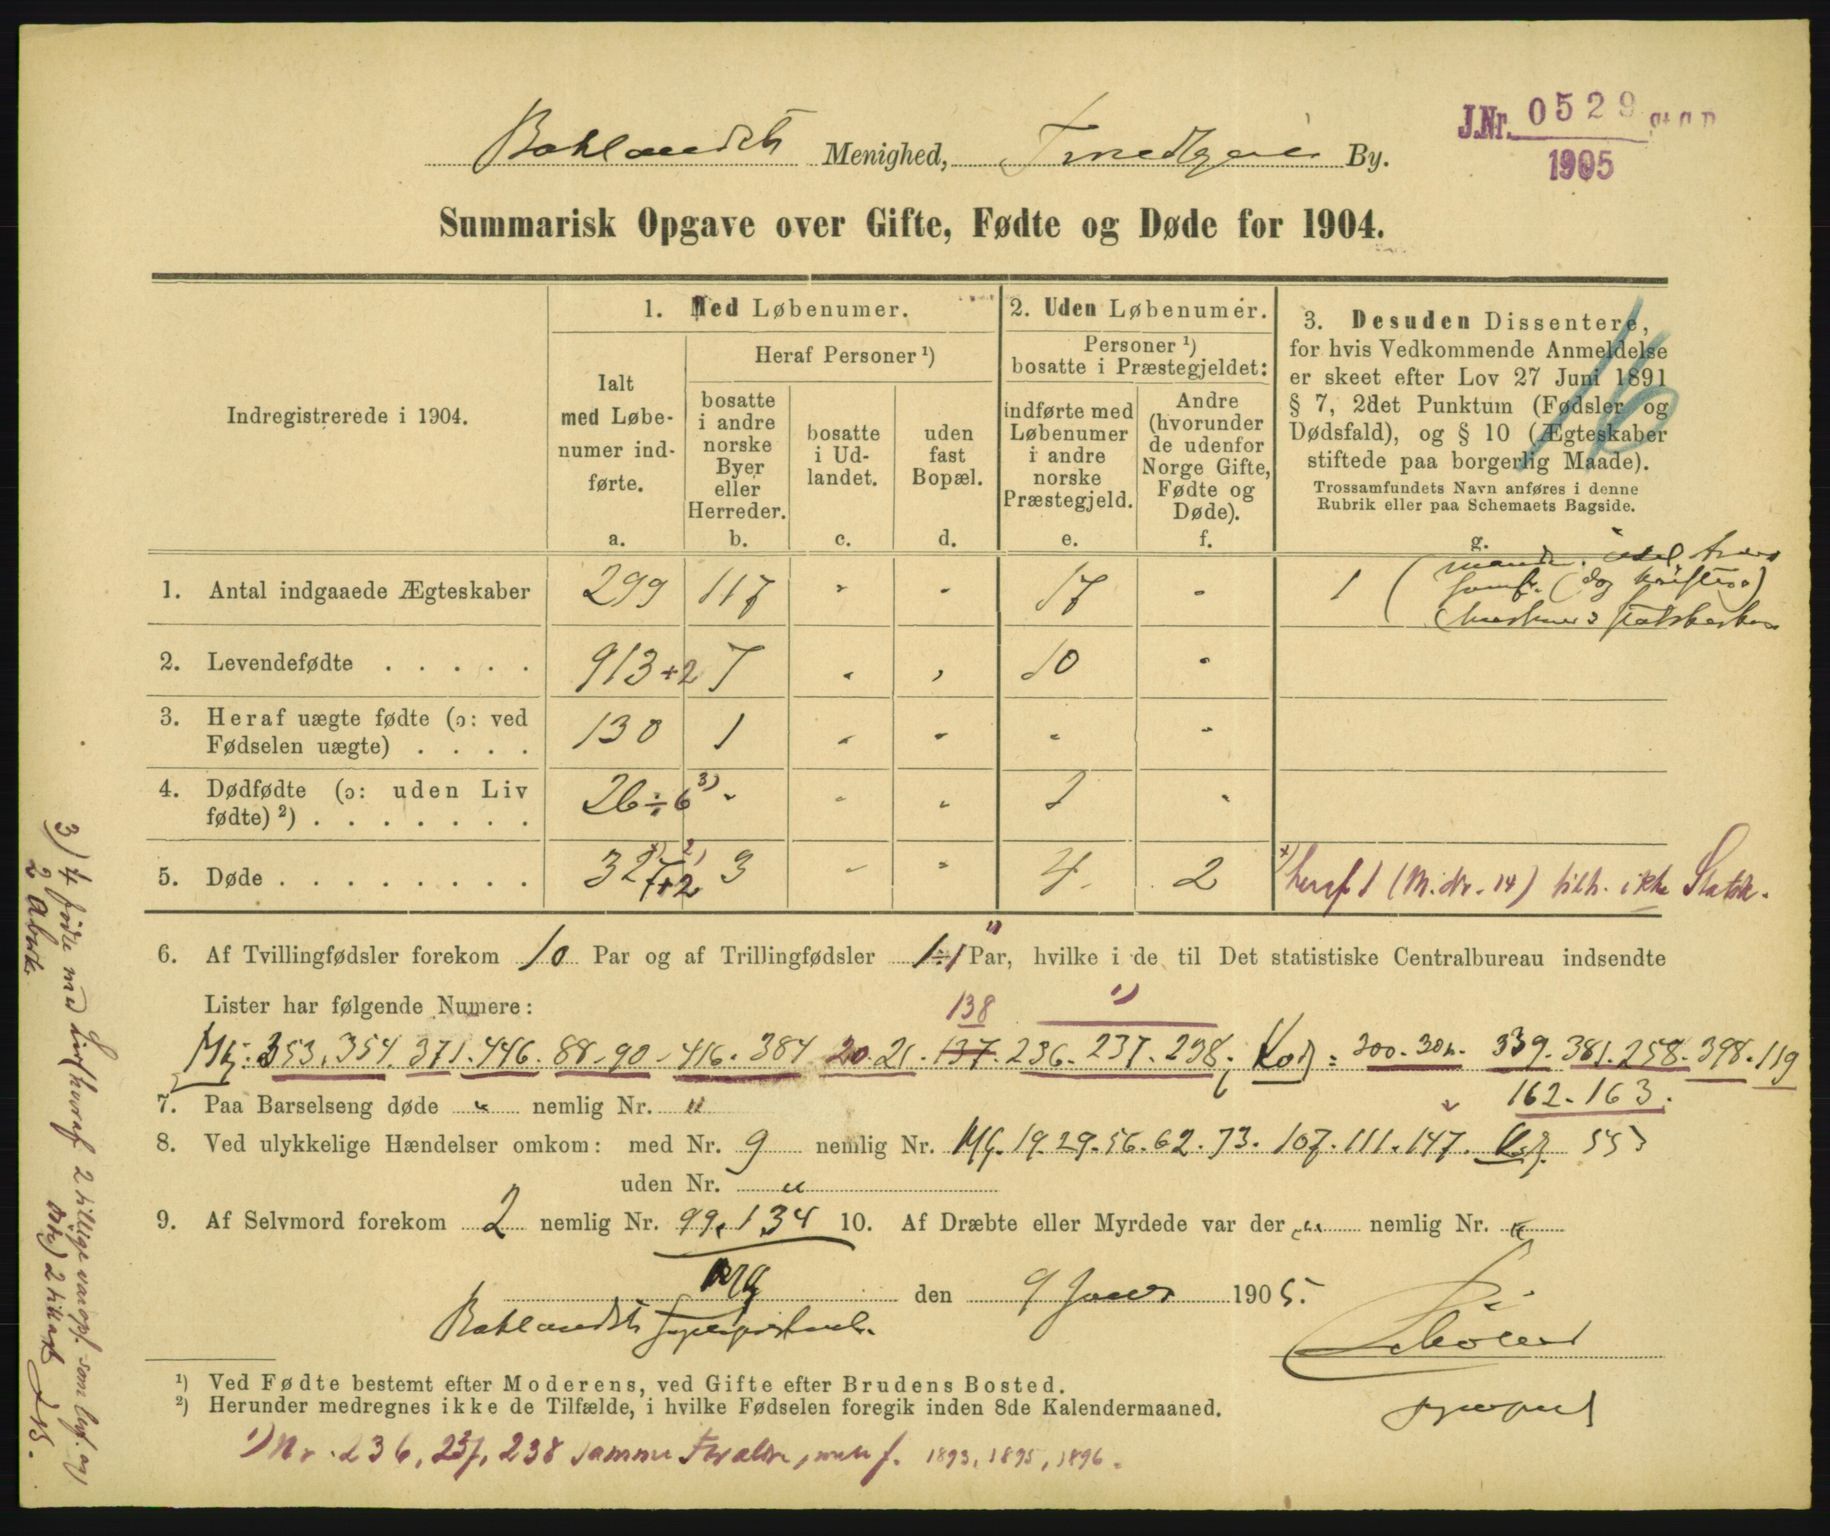 Baklandets Menighed, Trondhjems By.
J.Nr. 0529
1905
Summarisk Opgave over Gifte, Fødte og Døde for 1904.
Indregistrerede i 1904.
1. Med Løbenumer.
Ialt
med Løbe-
numer ind-
førte.
a.
Heraf Personer ¹)
bosatte
i andre
norske
Byer
eller
Herreder.
b.
bosatte
i Ud-
landet.
c.
uden
fast
Bopæl.
d.
2. Uden Løbenumer.
Personer ¹)
bosatte i Præstegjeldet:
indførte med
Løbenumer
i andre
norske
Præstegjeld.
e.
Andre
(hvorunder
de udenfor
Norge Gifte,
Fødte og
Døde).
f.
3. Desuden Dissentere,
for hvis Vedkommende Anmeldelse
er skeet efter Lov 27 Juni 1891
§ 7, 2det Punktum (Fødsler og
Dødsfald), og § 10 (Ægteskaber
stiftede paa borgerlig Maade).
Trossamfundets Navn anføres i denne
Rubrik eller paa Schemaets Bagside.
g.
16
1. Antal indgaaede Ægteskaber 299 117 - - 17 - 1
2. Levendefødte . . . . . 913 +2 7 - - 10 -
3. Heraf uægte fødte (ɔ: ved
Fødselen uægte) . . . . 130 1 - - - -
4. Dødfødte (ɔ: uden Liv
fødte) ²) . . . . . . . 26 ÷ 6 ³) - - - 1 -
5. Døde . . . . . . . . 327 +2 3 - - 4 2 heraf 1 (M. Nr. 14) tilh. ikke Statsk.
6. Af Tvillingfødsler forekom 10 Par og af Trillingfødsler 1 ÷ 1 ¹) Par, hvilke i de til Det statistiske Centralbureau indsendte
Lister har følgende Numere: 138 ¹)
Mk: 353. 354. 371. 446. 88. 90 - 416. 384 20. 21. 137. 236. 237. 238; Kv: 300. 301. 339. 381. 258. 398. 119
162. 163.
7. Paa Barselseng døde " nemlig Nr. "
8. Ved ulykkelige Hændelser omkom: med Nr. 9 nemlig Nr. Mk. 19. 29. 56. 62. 73. 107. 111. 147. Kv. 553
uden Nr. "
9. Af Selvmord forekom 2 nemlig Nr. 99. 134 10. Af Dræbte eller Myrdede var der " nemlig Nr. "
Mk
Baklandets den 9 Janr 1905.
¹) Ved Fødte bestemt efter Moderens, ved Gifte efter Brudens Bosted.
²) Herunder medregnes ikke de Tilfælde, i hvilke Fødselen foregik inden 8de Kalendermaaned.
¹) Nr. 236, 237, 238 samme Forældre, men f. 1893, 1895, 1896.
3) 4 fødte med Liv (hvoraf 2 tillige var opf. som lev. og
2 Abort.